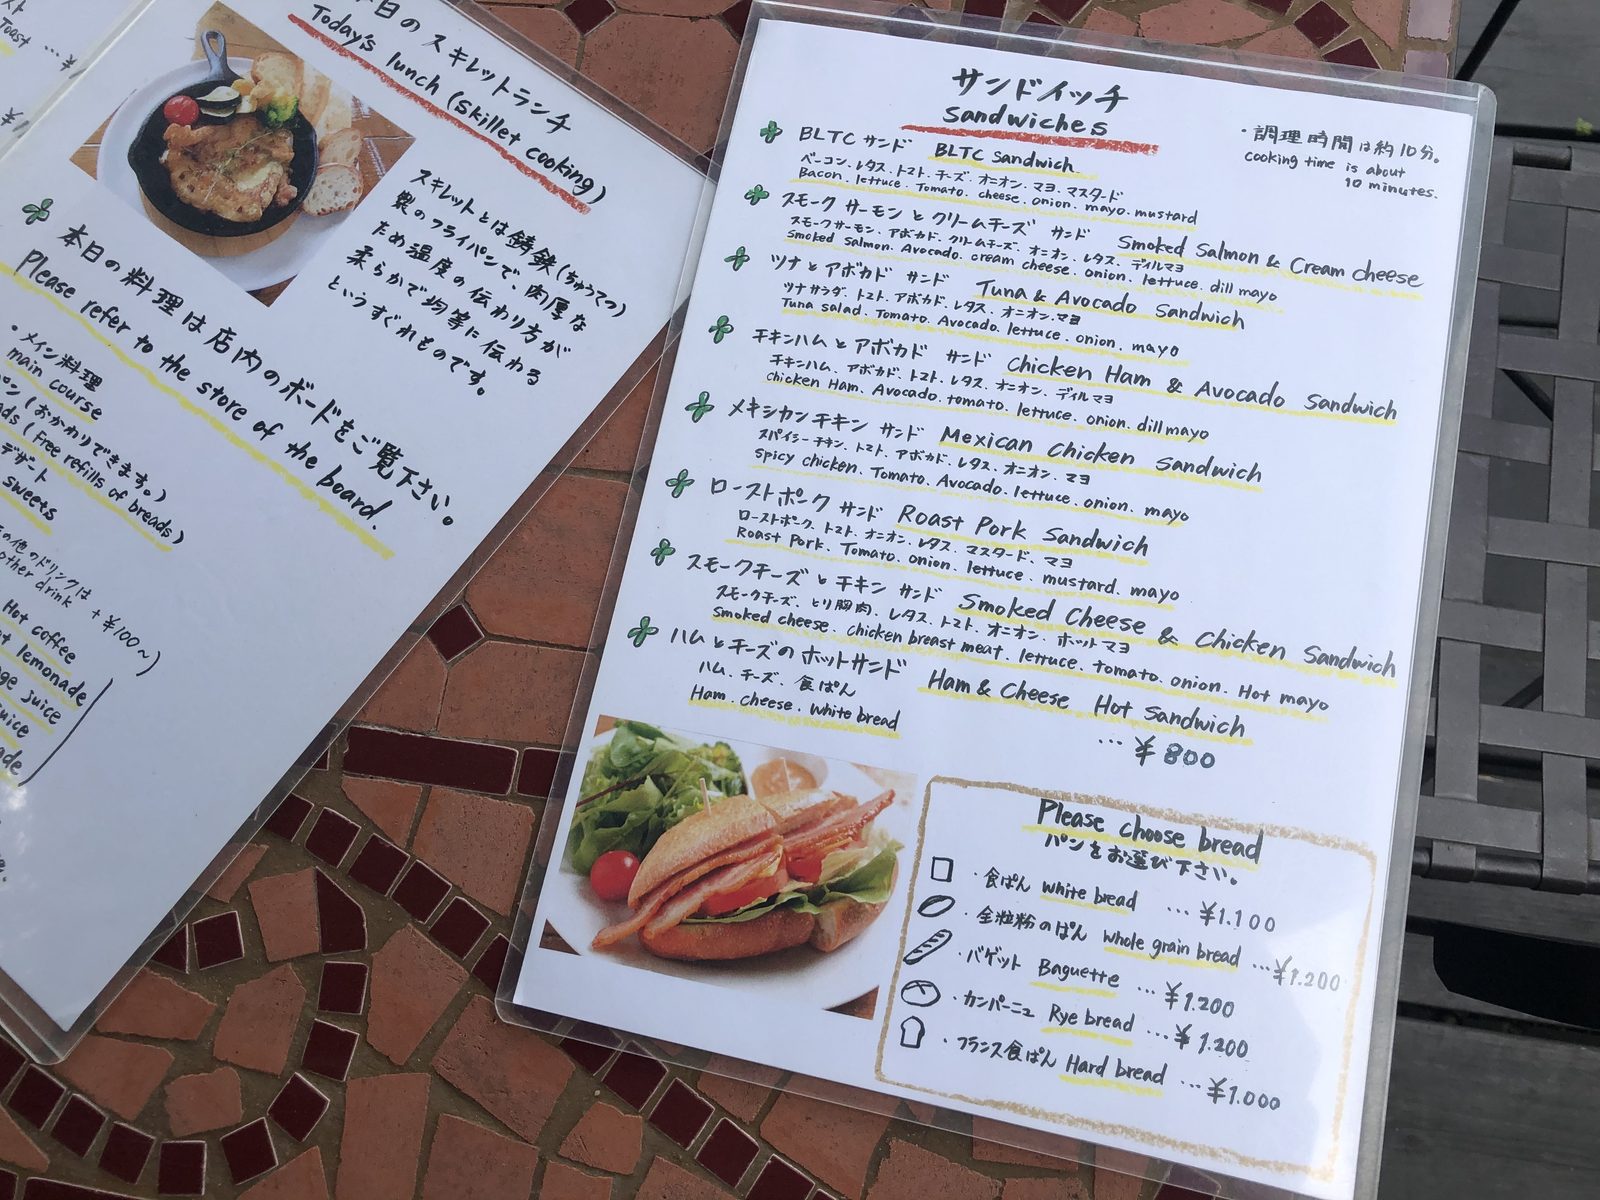 Toast … ¥
本日のスキレットランチ
Today's lunch (skillet cooking)
スキレットとは鋳鉄(ちゅうてつ)
製のフライパンで、肉厚な
ため温度の伝わり方が
柔らかで均等に伝わる
というすぐれものです。
本日の料理は店内のボードをご覧下さい。
Please refer to the store of the board.
・メイン料理
main course
パン(おかわりできます。)
(Free refills of breads)
デザート
sweets
その他のドリンクは +¥100〜)
other drink
Hot coffee
lemonade
juice
juice
サンドイッチ
sandwiches
・調理時間は約10分。
cooking time is about
10 minutes.
BLTC サンド BLTC sandwich
ベーコン、レタス、トマト、チーズ、オニオン、マヨ、マスタード
Bacon. lettuce. Tomato. cheese. onion. mayo. mustard
スモークサーモンとクリームチーズ サンド Smoked Salmon & Cream cheese
スモークサーモン、アボカド、クリームチーズ、オニオン、レタス、ディルマヨ
Smoked salmon. Avocado. cream cheese. onion. lettuce. dill mayo
ツナとアボカド サンド Tuna & Avocado Sandwich
ツナサラダ、トマト、アボカド、レタス、オニオン、マヨ
Tuna salad. Tomato. Avocado. lettuce. onion. mayo
チキンハムとアボカド サンド Chicken Ham & Avocado Sandwich
チキンハム、アボカド、トマト、レタス、オニオン、ディルマヨ
chicken Ham. Avocado. tomato. lettuce. onion. dill mayo
メキシカンチキン サンド Mexican Chicken Sandwich
スパイシーチキン、トマト、アボカド、レタス、オニオン、マヨ
spicy chicken. Tomato. Avocado. lettuce. onion. mayo
ローストポーク サンド Roast Pork Sandwich
ローストポーク、トマト、オニオン、レタス、マスタード、マヨ
Roast Pork. Tomato. onion. lettuce. mustard. mayo
スモークチーズとチキン サンド Smoked Cheese & Chicken Sandwich
スモークチーズ、とり胸肉、レタス、トマト、オニオン、ホットマヨ
Smoked cheese. chicken breast meat. lettuce. tomato. onion. Hot mayo
ハムとチーズのホットサンド Ham & Cheese Hot Sandwich
ハム、チーズ、食ぱん
Ham. cheese. white bread
… ¥800
Please choose bread
パンをお選び下さい。
・食ぱん white bread … ¥1.100
・全粒粉のぱん whole grain bread … ¥1.200
・バゲット Baguette … ¥1.200
・カンパーニュ Rye bread … ¥1.200
・フランス食ぱん Hard bread … ¥1.000